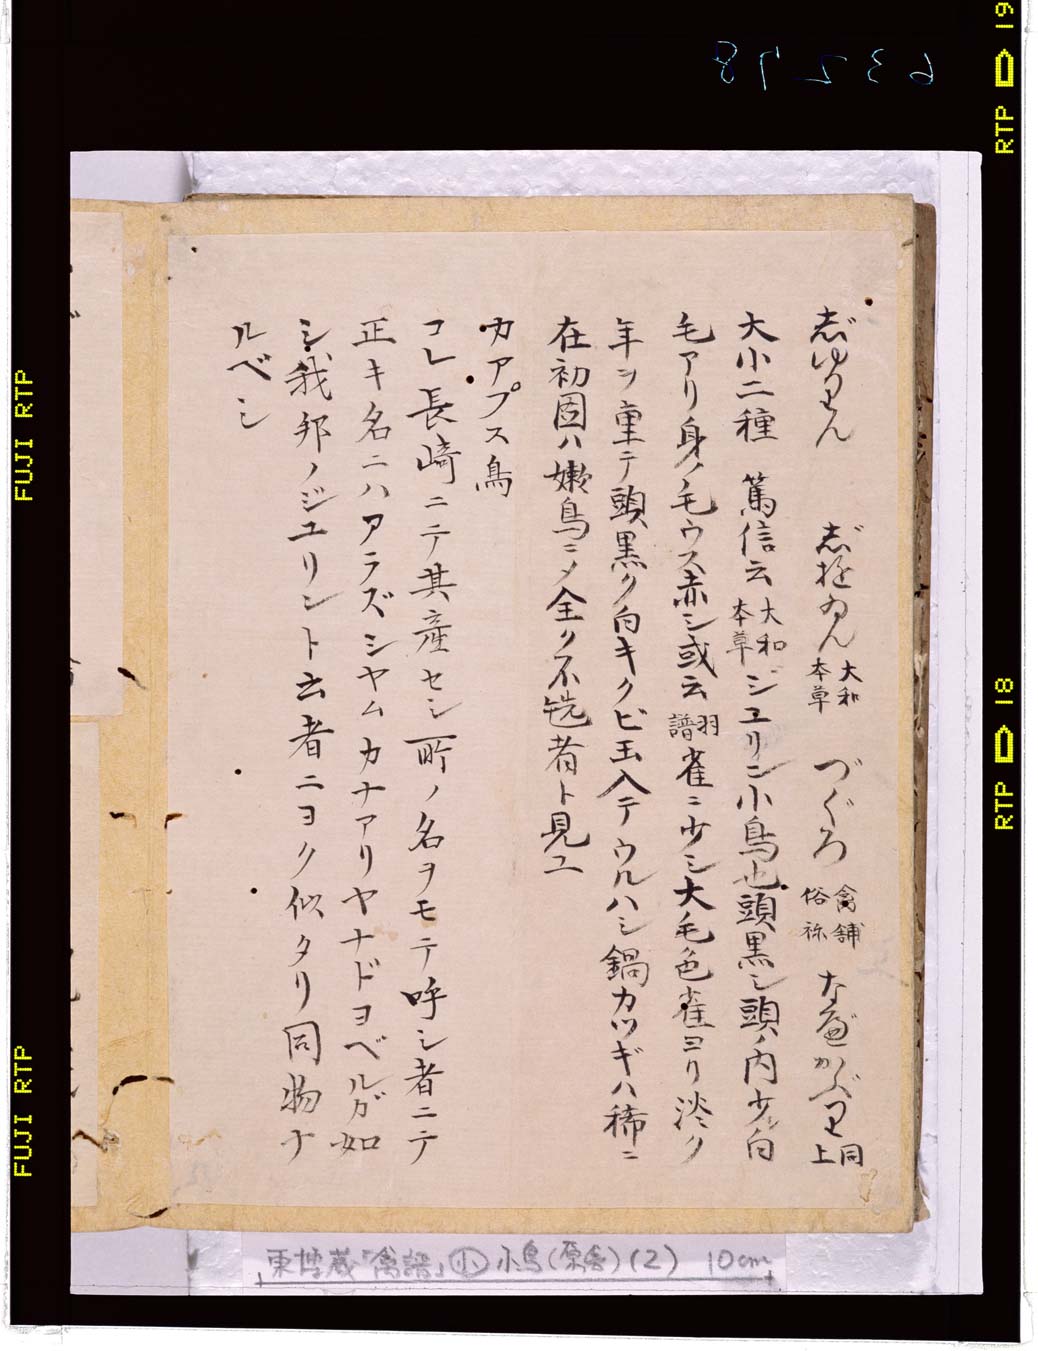 じゆりん　じゆゐん 大和本草　づぐろ 禽舗俗称　なべかぶり 同上
大小二種　篤信云 大和本草 ジユリン小鳥也頭黒シ頭ノ内少シ白
毛アリ身ノ毛ウス赤シ或云 羽譜 雀ニ少シ大毛色雀ヨリ淡ク
年ヲ重テ頭黒ク白キクビ玉入テウルハシ鍋カツギハ稀ニ
在初図ハ嫩鳥ニメ全ク不毨者ト見ユ
カアプス鳥
コレ長崎ニテ其産セシ所ノ名ヲモテ呼シ者ニテ
正キ名ニハアラズシヤムカナアリヤナドヨベルガ如
シ我邦ノジユリント云者ニヨク似タリ同物ナ
ルベシ
東博蔵「禽譜」小 小鳥(原禽)(2) 10cm
63298
FUJI RTP
FUJI RTP
RTP 19
RTP 18